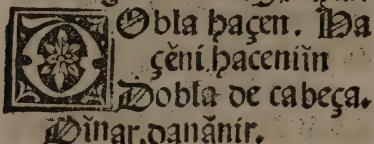 DObla haçen. Ha
çĕni. haceniĭn
Dobla de cabeça.
Dĭnar. danănir.